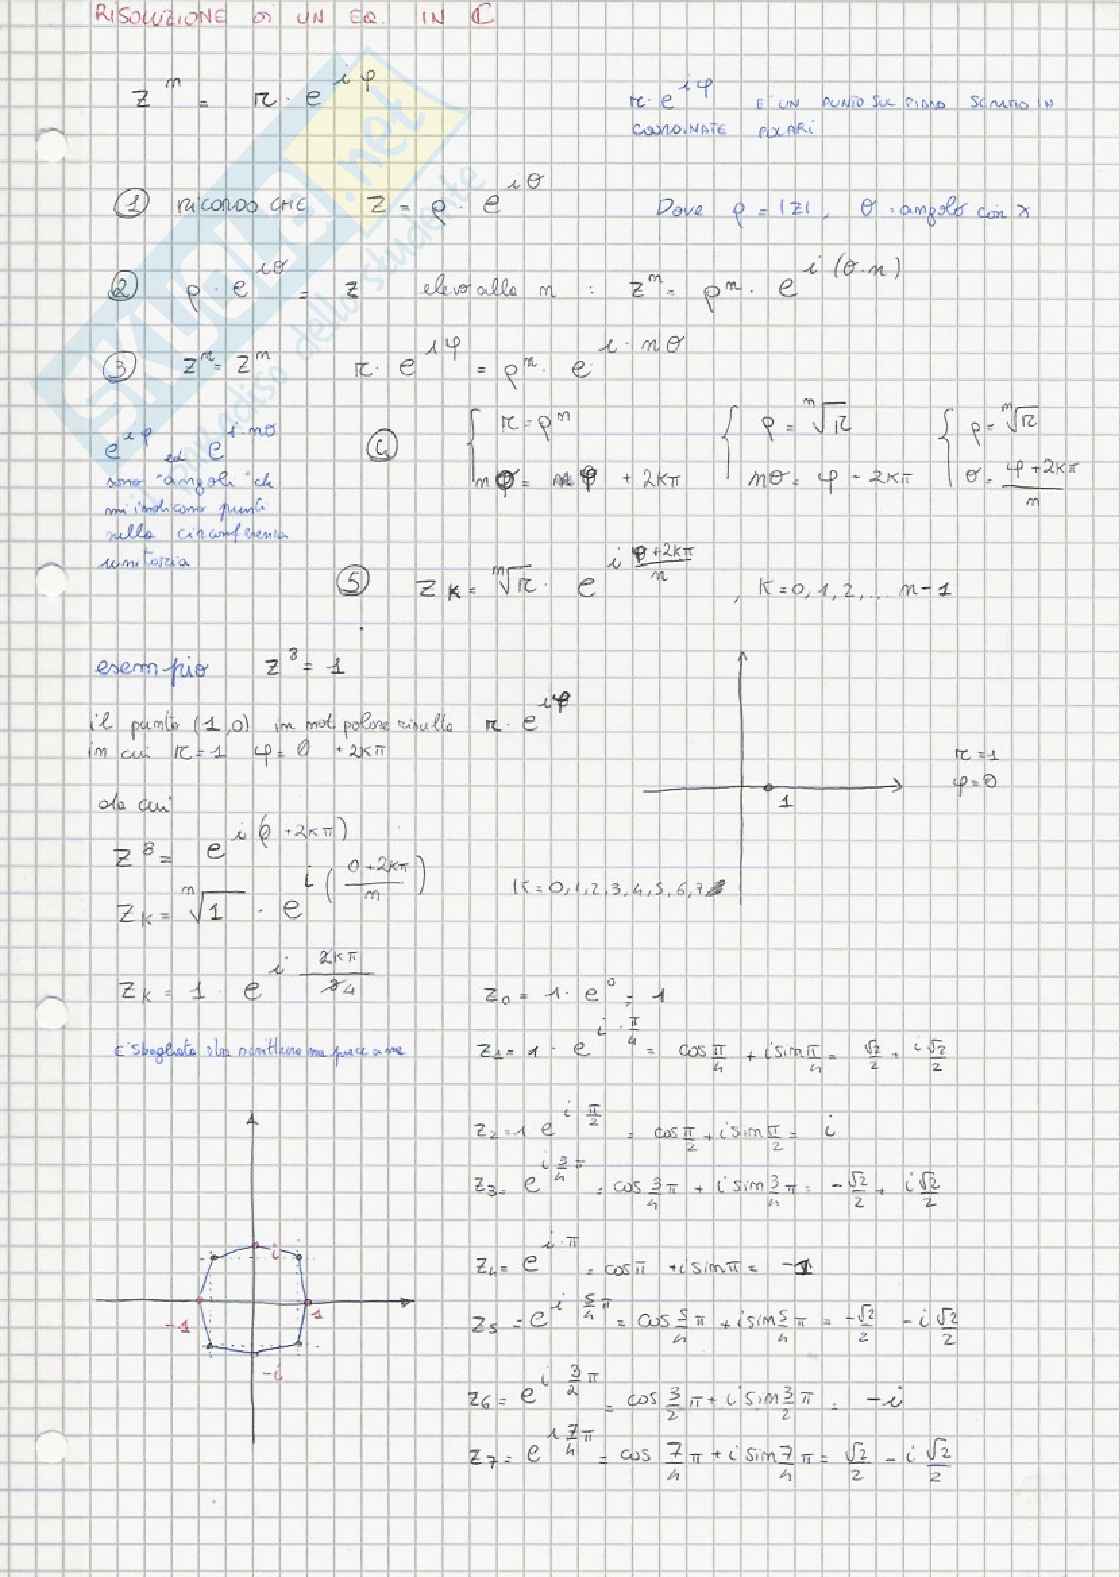 RISOLUZIONE DI UN EQ. IN ℂ
zⁿ = r · e^{iφ}
r · e^{iφ} E' UN PUNTO SUL PIANO SCRITTO IN
COORDINATE POLARI
① RICORDO CHE z = ρ · e^{iθ} Dove ρ = |z|, θ = angolo con x
② ρ · e^{iθ} = z elevo alla n : zⁿ = ρⁿ · e^{i(θ·n)}
③ zⁿ = zⁿ r · e^{iφ} = ρⁿ · e^{i·nθ}
e^{iφ} ed e^{i·nθ}
sono "angoli" che
mi indicano punti
nella circonferenza
unitaria
④ { r = ρⁿ { ρ = ⁿ√r { ρ = ⁿ√r
nθ = φ + 2kπ nθ = φ - 2kπ θ = (φ + 2kπ)/n
⑤ z_k = ⁿ√r · e^{i (φ+2kπ)/n} , K = 0, 1, 2, ... n-1
esempio z⁸ = 1
il punto (1,0) in not polare risulta r · e^{iφ}
in cui r = 1 φ = 0 + 2kπ
r = 1
φ = 0
1
da cui
z⁸ = e^{i(0 + 2kπ)}
z_k = ⁿ√1 · e^{i((0+2kπ)/n)} K = 0, 1, 2, 3, 4, 5, 6, 7
z_k = 1 · e^{i 2kπ/84}
E' sbagliata sta scrittura ma piace a me
z₀ = 1 · e⁰ = 1
z₁ = 1 · e^{i·π/4} = cos π/4 + i sin π/4 = √2/2 + i √2/2
z₂ = 1 e^{i π/2} = cos π/2 + i sin π/2 = i
z₃ = e^{i 3/4 π} = cos 3/4 π + i sin 3/4 π = -√2/2 + i √2/2
z₄ = e^{i·π} = cos π + i sin π = -1
z₅ = e^{i 5/4 π} = cos 5/4 π + i sin 5/4 π = -√2/2 - i √2/2
z₆ = e^{i 3/2 π} = cos 3/2 π + i sin 3/2 π = -i
z₇ = e^{i 7/4 π} = cos 7/4 π + i sin 7/4 π = √2/2 - i √2/2
i
-1
1
-i
SKUOLA.net
il paradiso dello studente